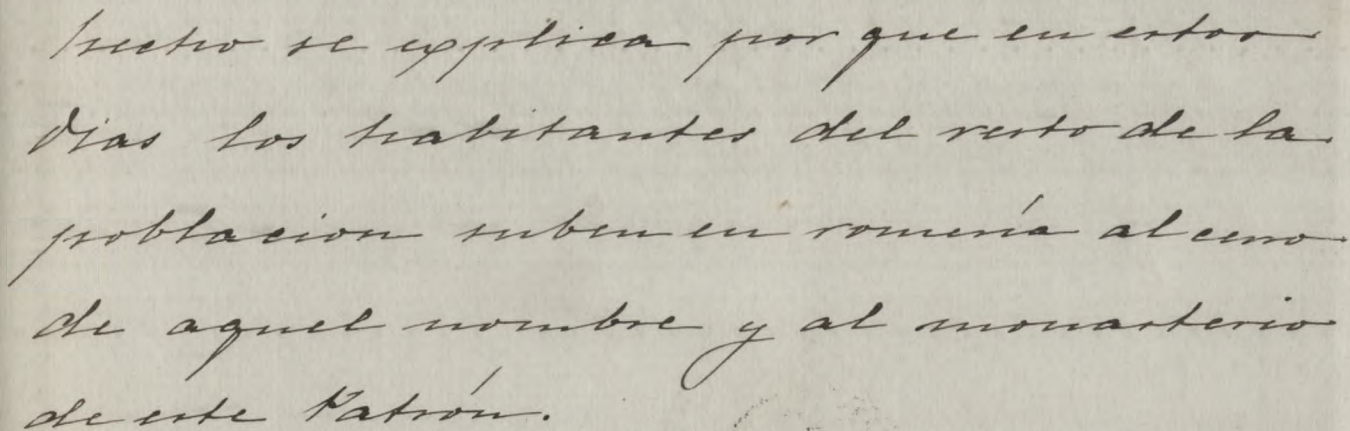 hecho se explica por que en estos
dias los habitantes del resto de la
poblacion suben en romería al cerro
de aquel nombre y al monasterio
de este Patrón.